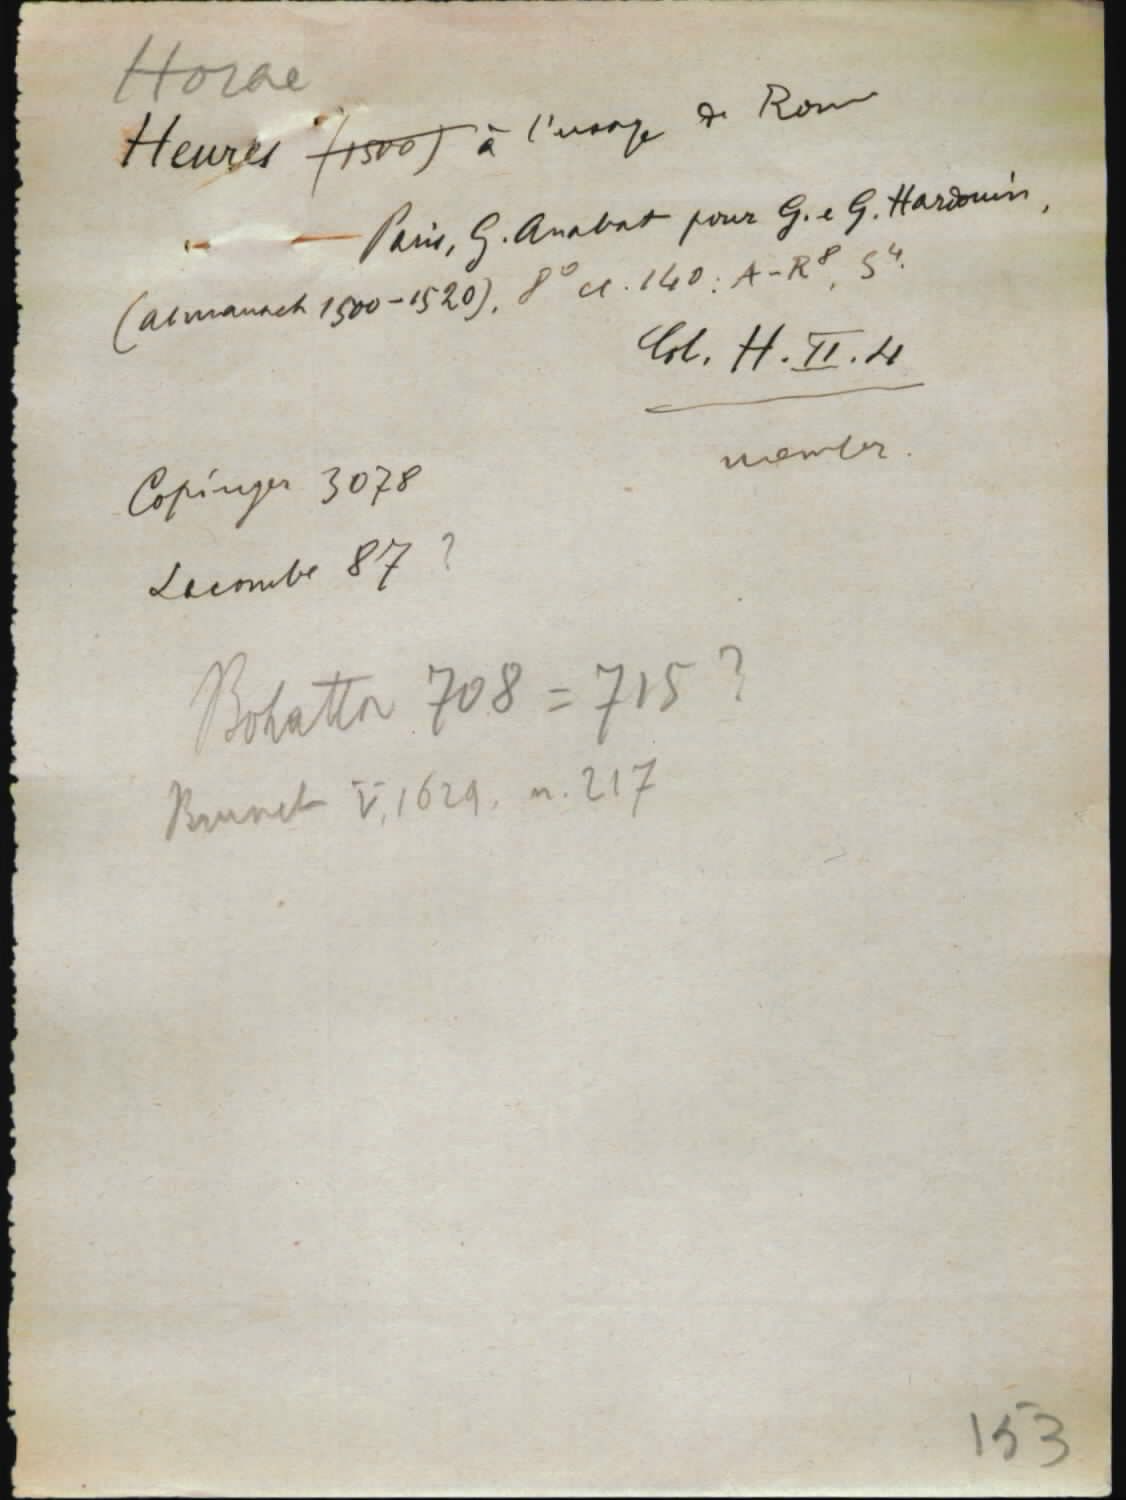 Horae
Heures (1500) à l'usage de Rome
Paris, G. Anabat pour G. e G. Hardouin,
(almanach 1500-1520), 8° cc. 140: A-R⁸, S⁴.
Col. H. II. 4
membr.
Copinger 3078
Lacombe 87?
Bohatta 708 = 715?
Brunet V, 1629, n. 217
153